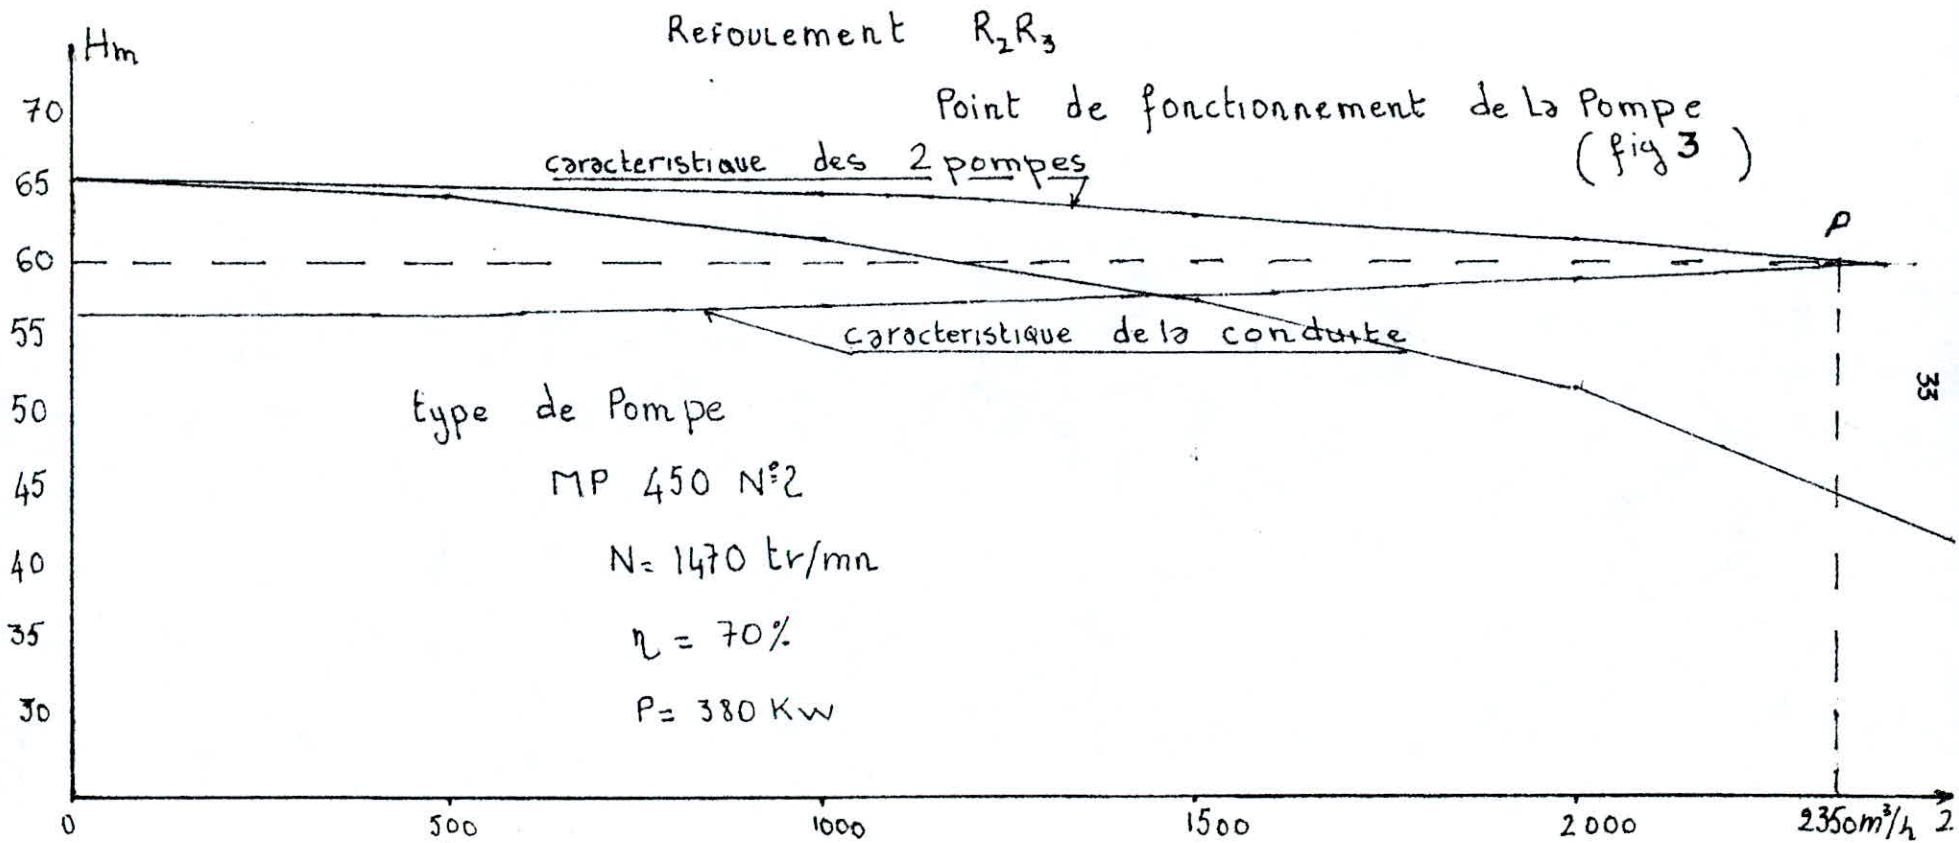 Refoulement R₂R₃
Hm
Point de fonctionnement de La Pompe
(fig 3)
caracteristique des 2 pompes
P
70
65
60
55
50
45
40
35
30
caracteristique de la conduite
type de Pompe
MP 450 N°2
N= 1470 tr/mn
η = 70%
P= 380 Kw
33
0 500 1000 1500 2000 2350m³/h 2